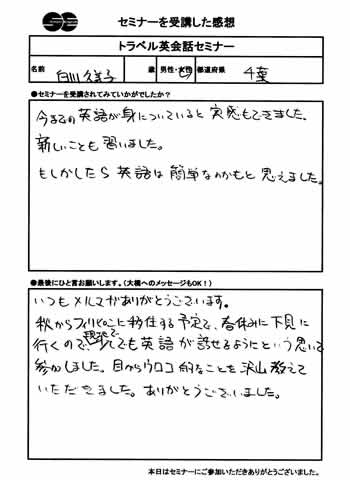 セミナーを受講した感想
トラベル英会話セミナー
名前 白川久美子 歳 男性・女性 都道府県 千葉
●セミナーを受講されてみていかがでしたか？
今までの英語が身についていると実感もできました、
新しいことも習いました。
もしかしたら英語は簡単なのかもと思えました。
●最後にひと言お願いします。(大橋へのメッセージもOK！)
いつもメルマガありがとうございます。
秋からフィリピンに移住する予定で、春休みに下見に
行くので、現地で少しでも英語が話せるようにという思いで
参加しました。目からウロコ的なことを沢山教えて
いただきました。ありがとうございました。
本日はセミナーにご参加いただきありがとうございました。